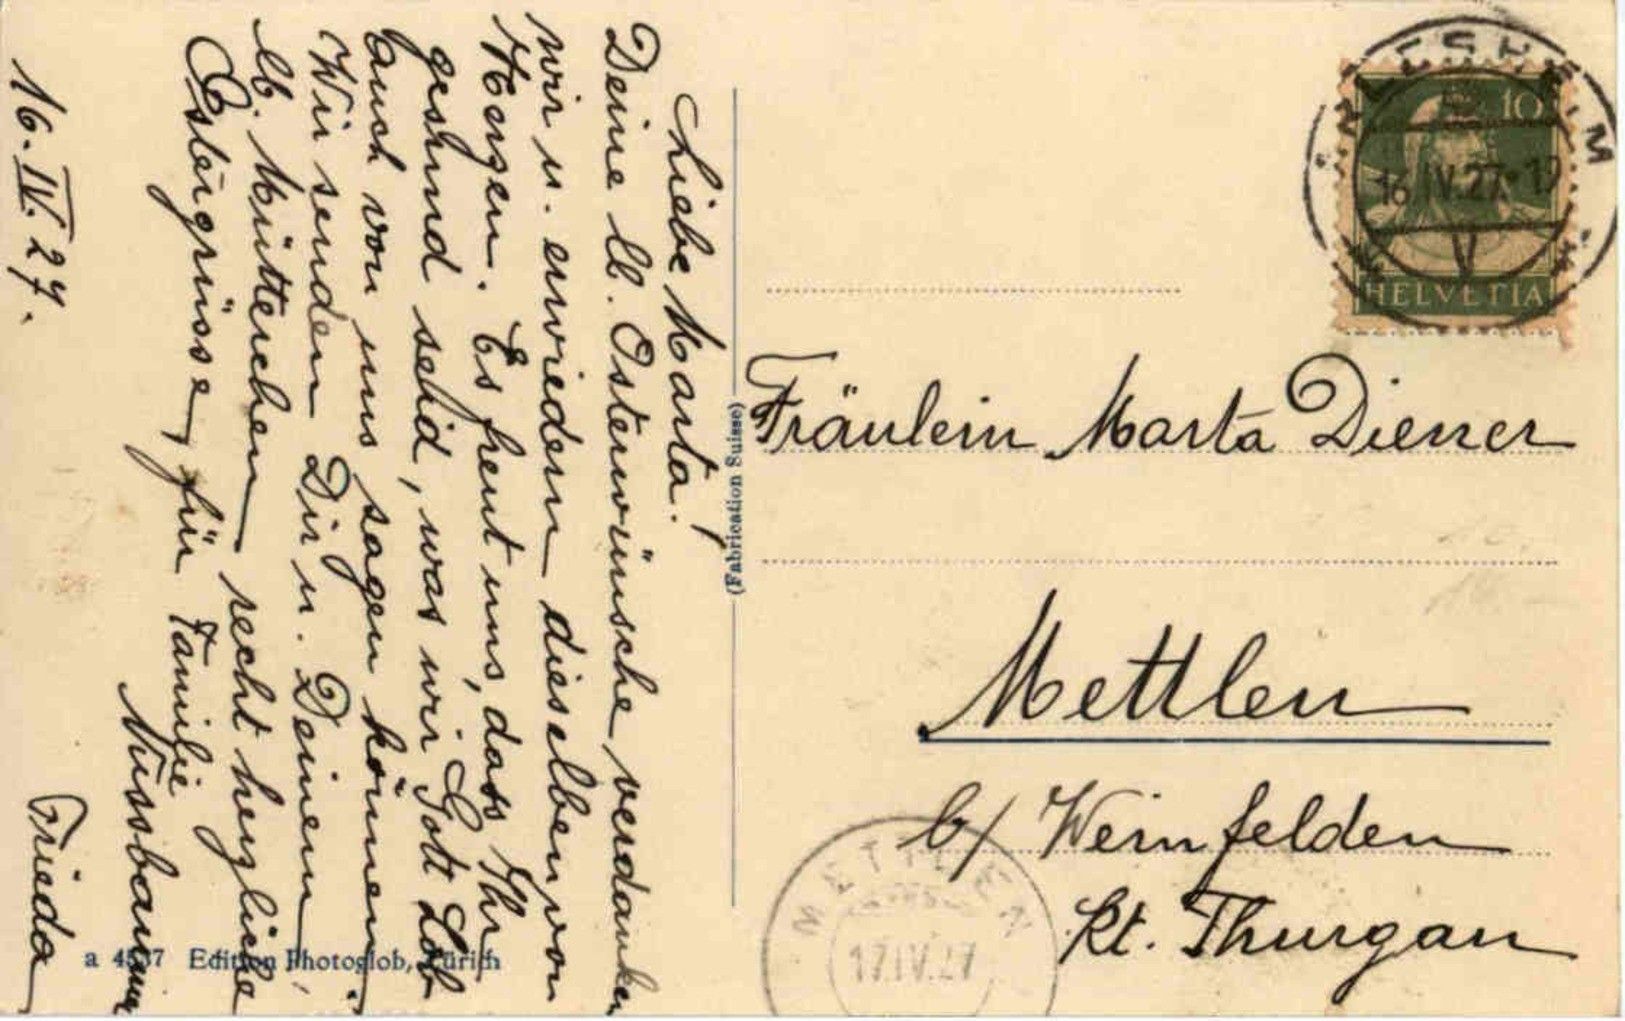 Liebe Marta!
Deine lb. Osterwünsche verdanken
wir u. erwiedern dieselben von
Herzen. Es freut uns, dass Ihr
gesund seid, was wir Gott Lob
auch von uns sagen können.
Wir senden Dir u. Deinem
lb. Mütterchen recht herzliche
Ostergrüsse, für Familie
Nussbaumer
Frieda
16. IV. 27.
(Fabrication Suisse)
a 4537 Edition Photoglob, Zürich
ARLESHEIM
16.IV.27
10
HELVETIA
Fräulein Marta Diener
Mettlen
b/ Weinfelden
Kt. Thurgau
METTLEN
17.IV.27